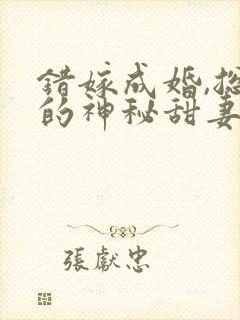 錯嫁成婚,
的神秘甜妻
張獻忠